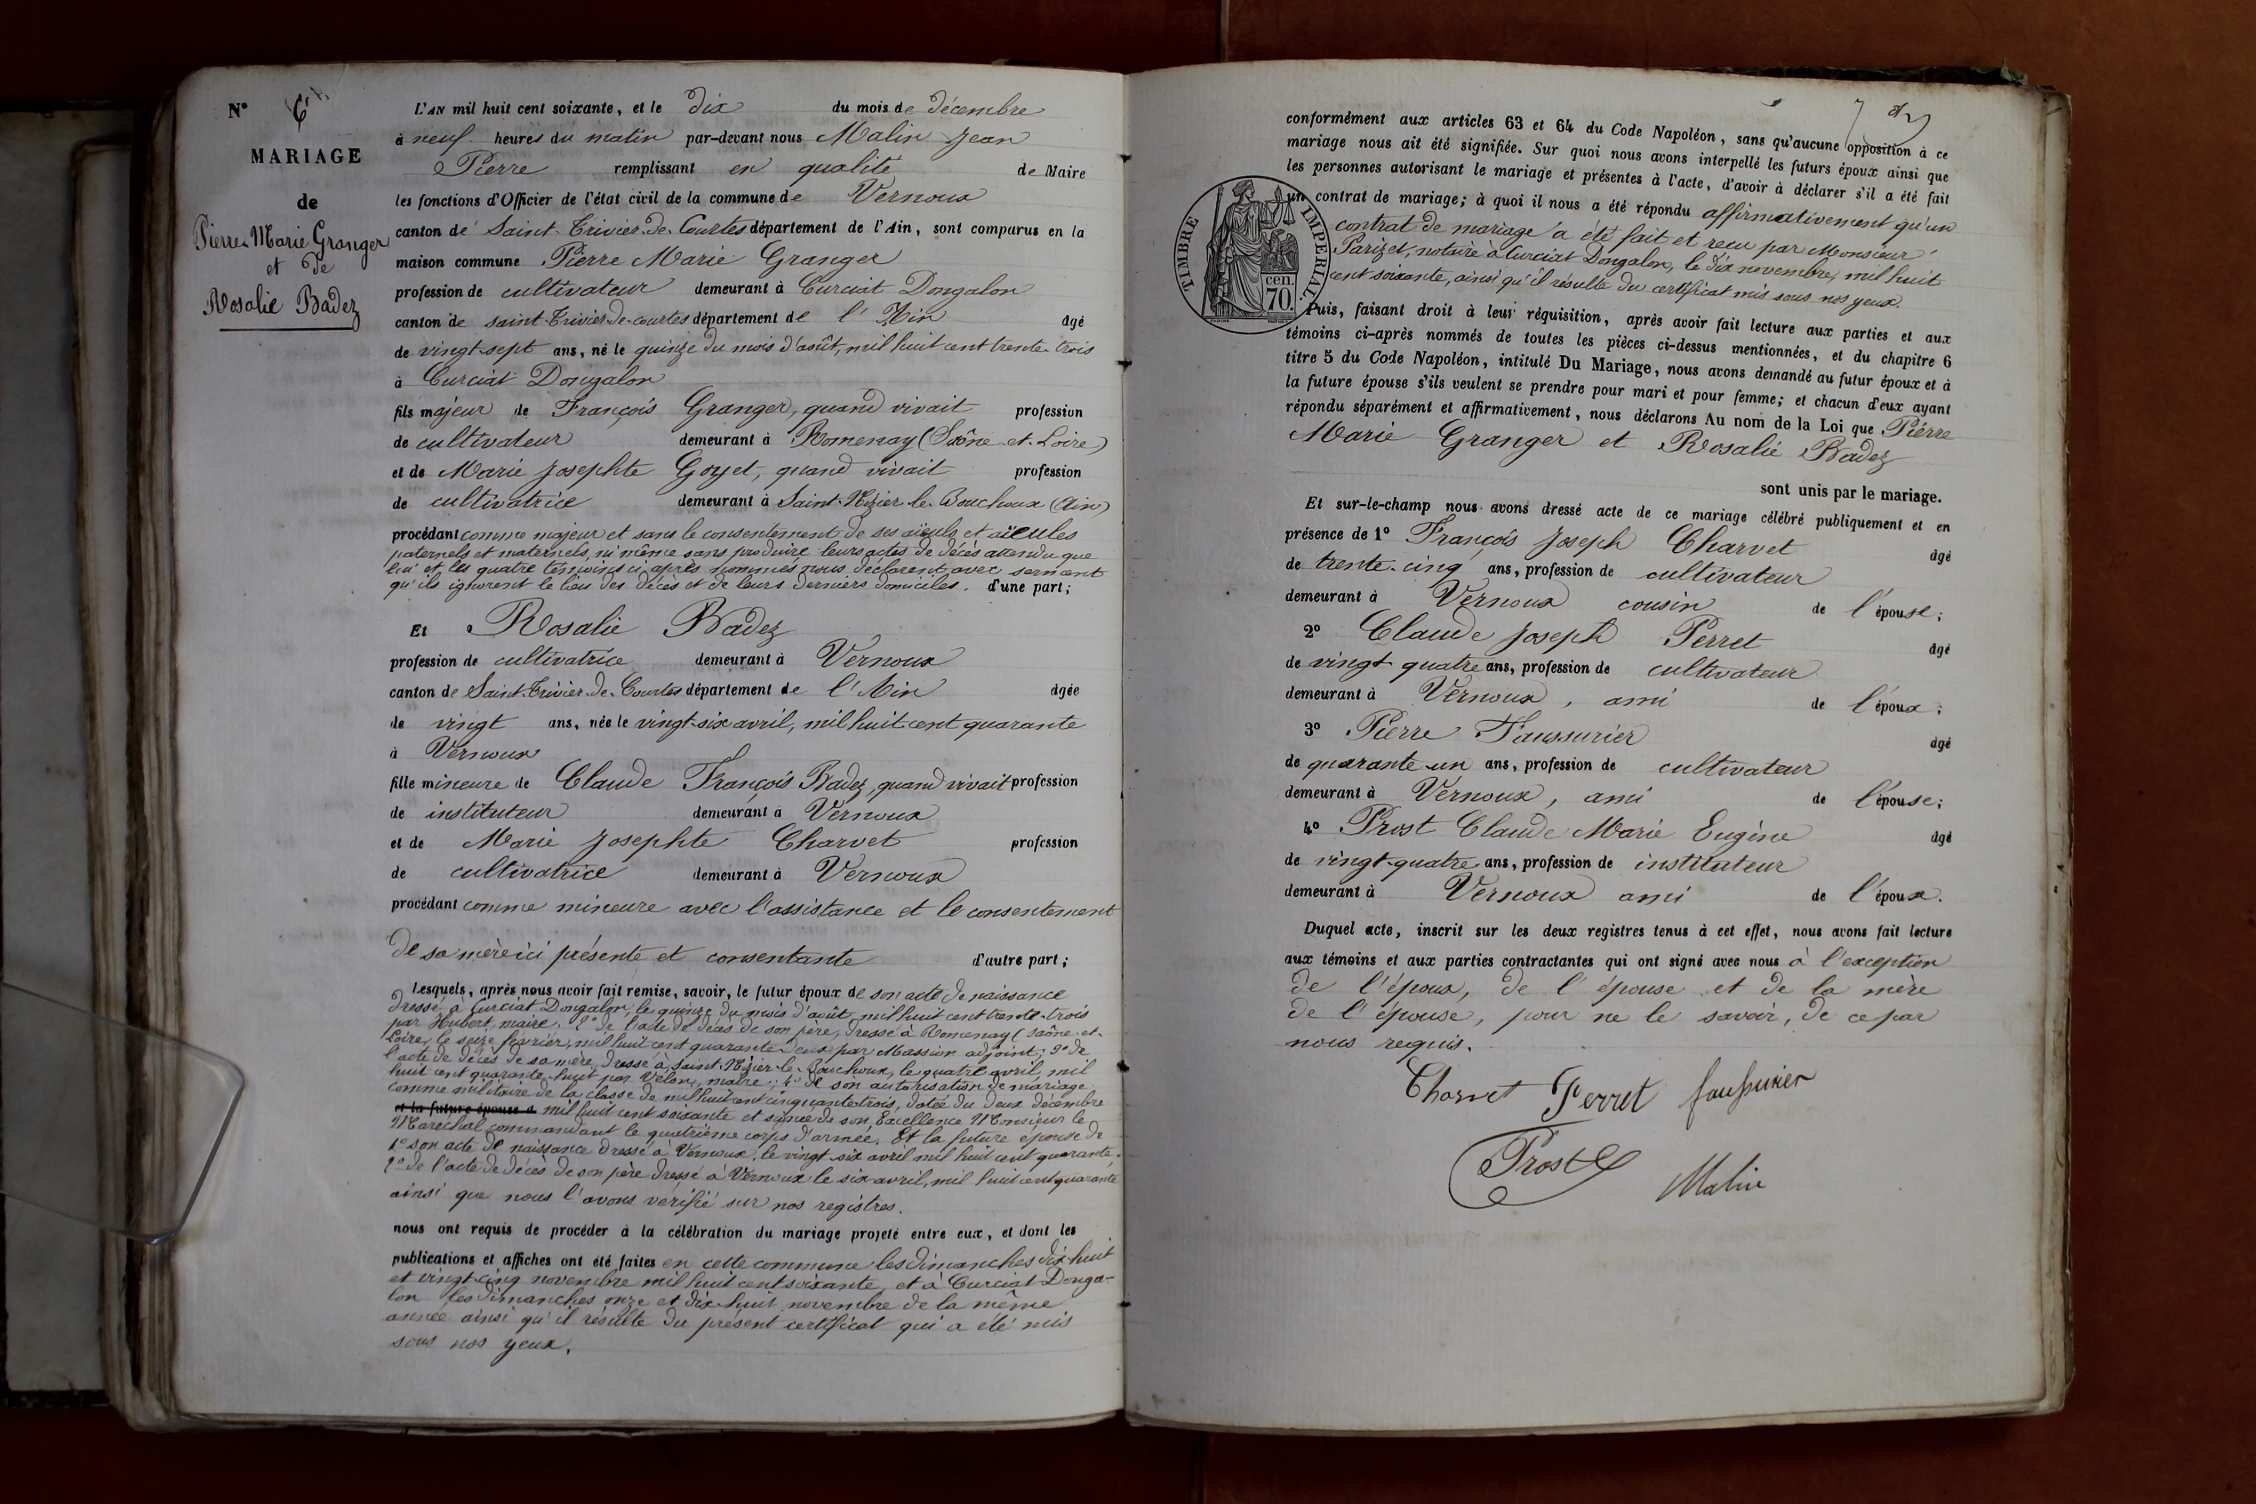 N° 6
MARIAGE
de
Pierre-Marie Granger
et de
Rosalie Badez
L'AN mil huit cent soixante, et le dix du mois de décembre
à neuf heures du matin par-devant nous Malin Jean
Pierre remplissant en qualité de Maire
les fonctions d'Officier de l'état civil de la commune de Vernoux
canton de Saint-Trivier-de-Courtes département de l'Ain, sont comparus en la
maison commune Pierre Marie Granger
profession de cultivateur demeurant à Curciat Dongalon
canton de saint-Trivier-de-courtes département de l'Ain âgé
de vingt-sept ans, né le quinze du mois d'août, mil huit cent trente-trois
à Curciat Dongalon
fils majeur de François Granger, quand vivait profession
de cultivateur demeurant à Romenay (Saône-et-Loire)
et de Marie Josephte Goyet, quand vivait profession
de cultivatrice demeurant à Saint-Nizier-le-Bouchoux (Ain)
procédant comme majeur et sans le consentement de ses aïeuls et aïeules
paternels et maternels, ni même sans produire leurs actes de décès attendu que
lui et les quatre témoins ci-après nommés nous déclarent avec serment
qu'ils ignorent le lieu des décès et de leurs derniers domiciles. d'une part;
Et Rosalie Badez
profession de cultivatrice demeurant à Vernoux
canton de Saint-Trivier-de-Courtes département de l'Ain âgée
de vingt ans, née le vingt-six avril, mil huit cent quarante
à Vernoux
fille mineure de Claude François Badez, quand vivait profession
de instituteur demeurant à Vernoux
et de Marie Josephte Charvet profession
de cultivatrice demeurant à Vernoux
procédant comme mineure avec l'assistance et le consentement
de sa mère ici présente et consentante d'autre part;
Lesquels, après nous avoir fait remise, savoir, le futur époux de son acte de naissance
dressé à Curciat Dongalon, le quinze du mois d'août, mil huit cent trente-trois
par Hubert, maire. 2° de l'acte de décès de son père, dressé à Romenay (Saône-et-
Loire, le seize février, mil huit cent quarante-deux par Massion adjoint; 3° de
l'acte de décès de sa mère, dressé à Saint-Nizier-le-Bouchoux, le quatre avril, mil
huit cent quarante-huit par Velon, maire; 4° de son autorisation de mariage
comme militaire de la classe de mil huit cent cinquante-trois, datée du deux décembre
et la future épouse d mil huit cent soixante et signée de son Excellence Monsieur le
Maréchal commandant le quatrième corps d'armée. Et la future épouse de
1° son acte de naissance dressé à Vernoux, le vingt-six avril mil huit cent quarante.
2° de l'acte de décès de son père dressé à Vernoux le six avril, mil huit cent quarante
ainsi que nous l'avons vérifié sur nos registres.
nous ont requis de procéder à la célébration du mariage projeté entre eux, et dont les
publications et affiches ont été faites en cette commune les dimanches dix-huit
et vingt-cinq novembre mil huit cent soixante, et à Curciat-Donga-
lon les dimanches onze et dix-huit novembre de la même
année ainsi qu'il résulte du présent certificat qui a été mis
sous nos yeux.
7
conformément aux articles 63 et 64 du Code Napoléon, sans qu'aucune opposition à ce
mariage nous ait été signifiée. Sur quoi nous avons interpellé les futurs époux ainsi que
les personnes autorisant le mariage et présentes à l'acte, d'avoir à déclarer s'il a été fait
un contrat de mariage; à quoi il nous a été répondu affirmativement qu'un
contrat de mariage a été fait et reçu par Monsieur
Parizet, notaire à Curciat Dongalon, le dix novembre, mil huit
cent soixante, ainsi qu'il résulte du certificat mis sous nos yeux.
TIMBRE IMPERIAL.
cen.
70.
Puis, faisant droit à leur réquisition, après avoir fait lecture aux parties et aux
témoins ci-après nommés de toutes les pièces ci-dessus mentionnées, et du chapitre 6
titre 5 du Code Napoléon, intitulé Du Mariage, nous avons demandé au futur époux et à
la future épouse s'ils veulent se prendre pour mari et pour femme; et chacun d'eux ayant
répondu séparément et affirmativement, nous déclarons Au nom de la Loi que Pierre
Marie Granger et Rosalie Badez
sont unis par le mariage.
Et sur-le-champ nous avons dressé acte de ce mariage célébré publiquement et en
présence de 1° François Joseph Charvet âgé
de trente-cinq ans, profession de cultivateur
demeurant à Vernoux cousin de l'épouse;
2° Claude Joseph Perret âgé
de vingt-quatre ans, profession de cultivateur
demeurant à Vernoux, ami de l'époux;
3° Pierre Faussurier âgé
de quarante-un ans, profession de cultivateur
demeurant à Vernoux, ami de l'épouse;
4° Prost Claude Marie Eugène âgé
de vingt-quatre ans, profession de instituteur
demeurant à Vernoux ami de l'époux.
Duquel acte, inscrit sur les deux registres tenus à cet effet, nous avons fait lecture
aux témoins et aux parties contractantes qui ont signé avec nous à l'exception
de l'époux, de l'épouse et de la mère
de l'épouse, pour ne le savoir, de ce par
nous requis.
Charvet Perret faussurier
Prost
Malin